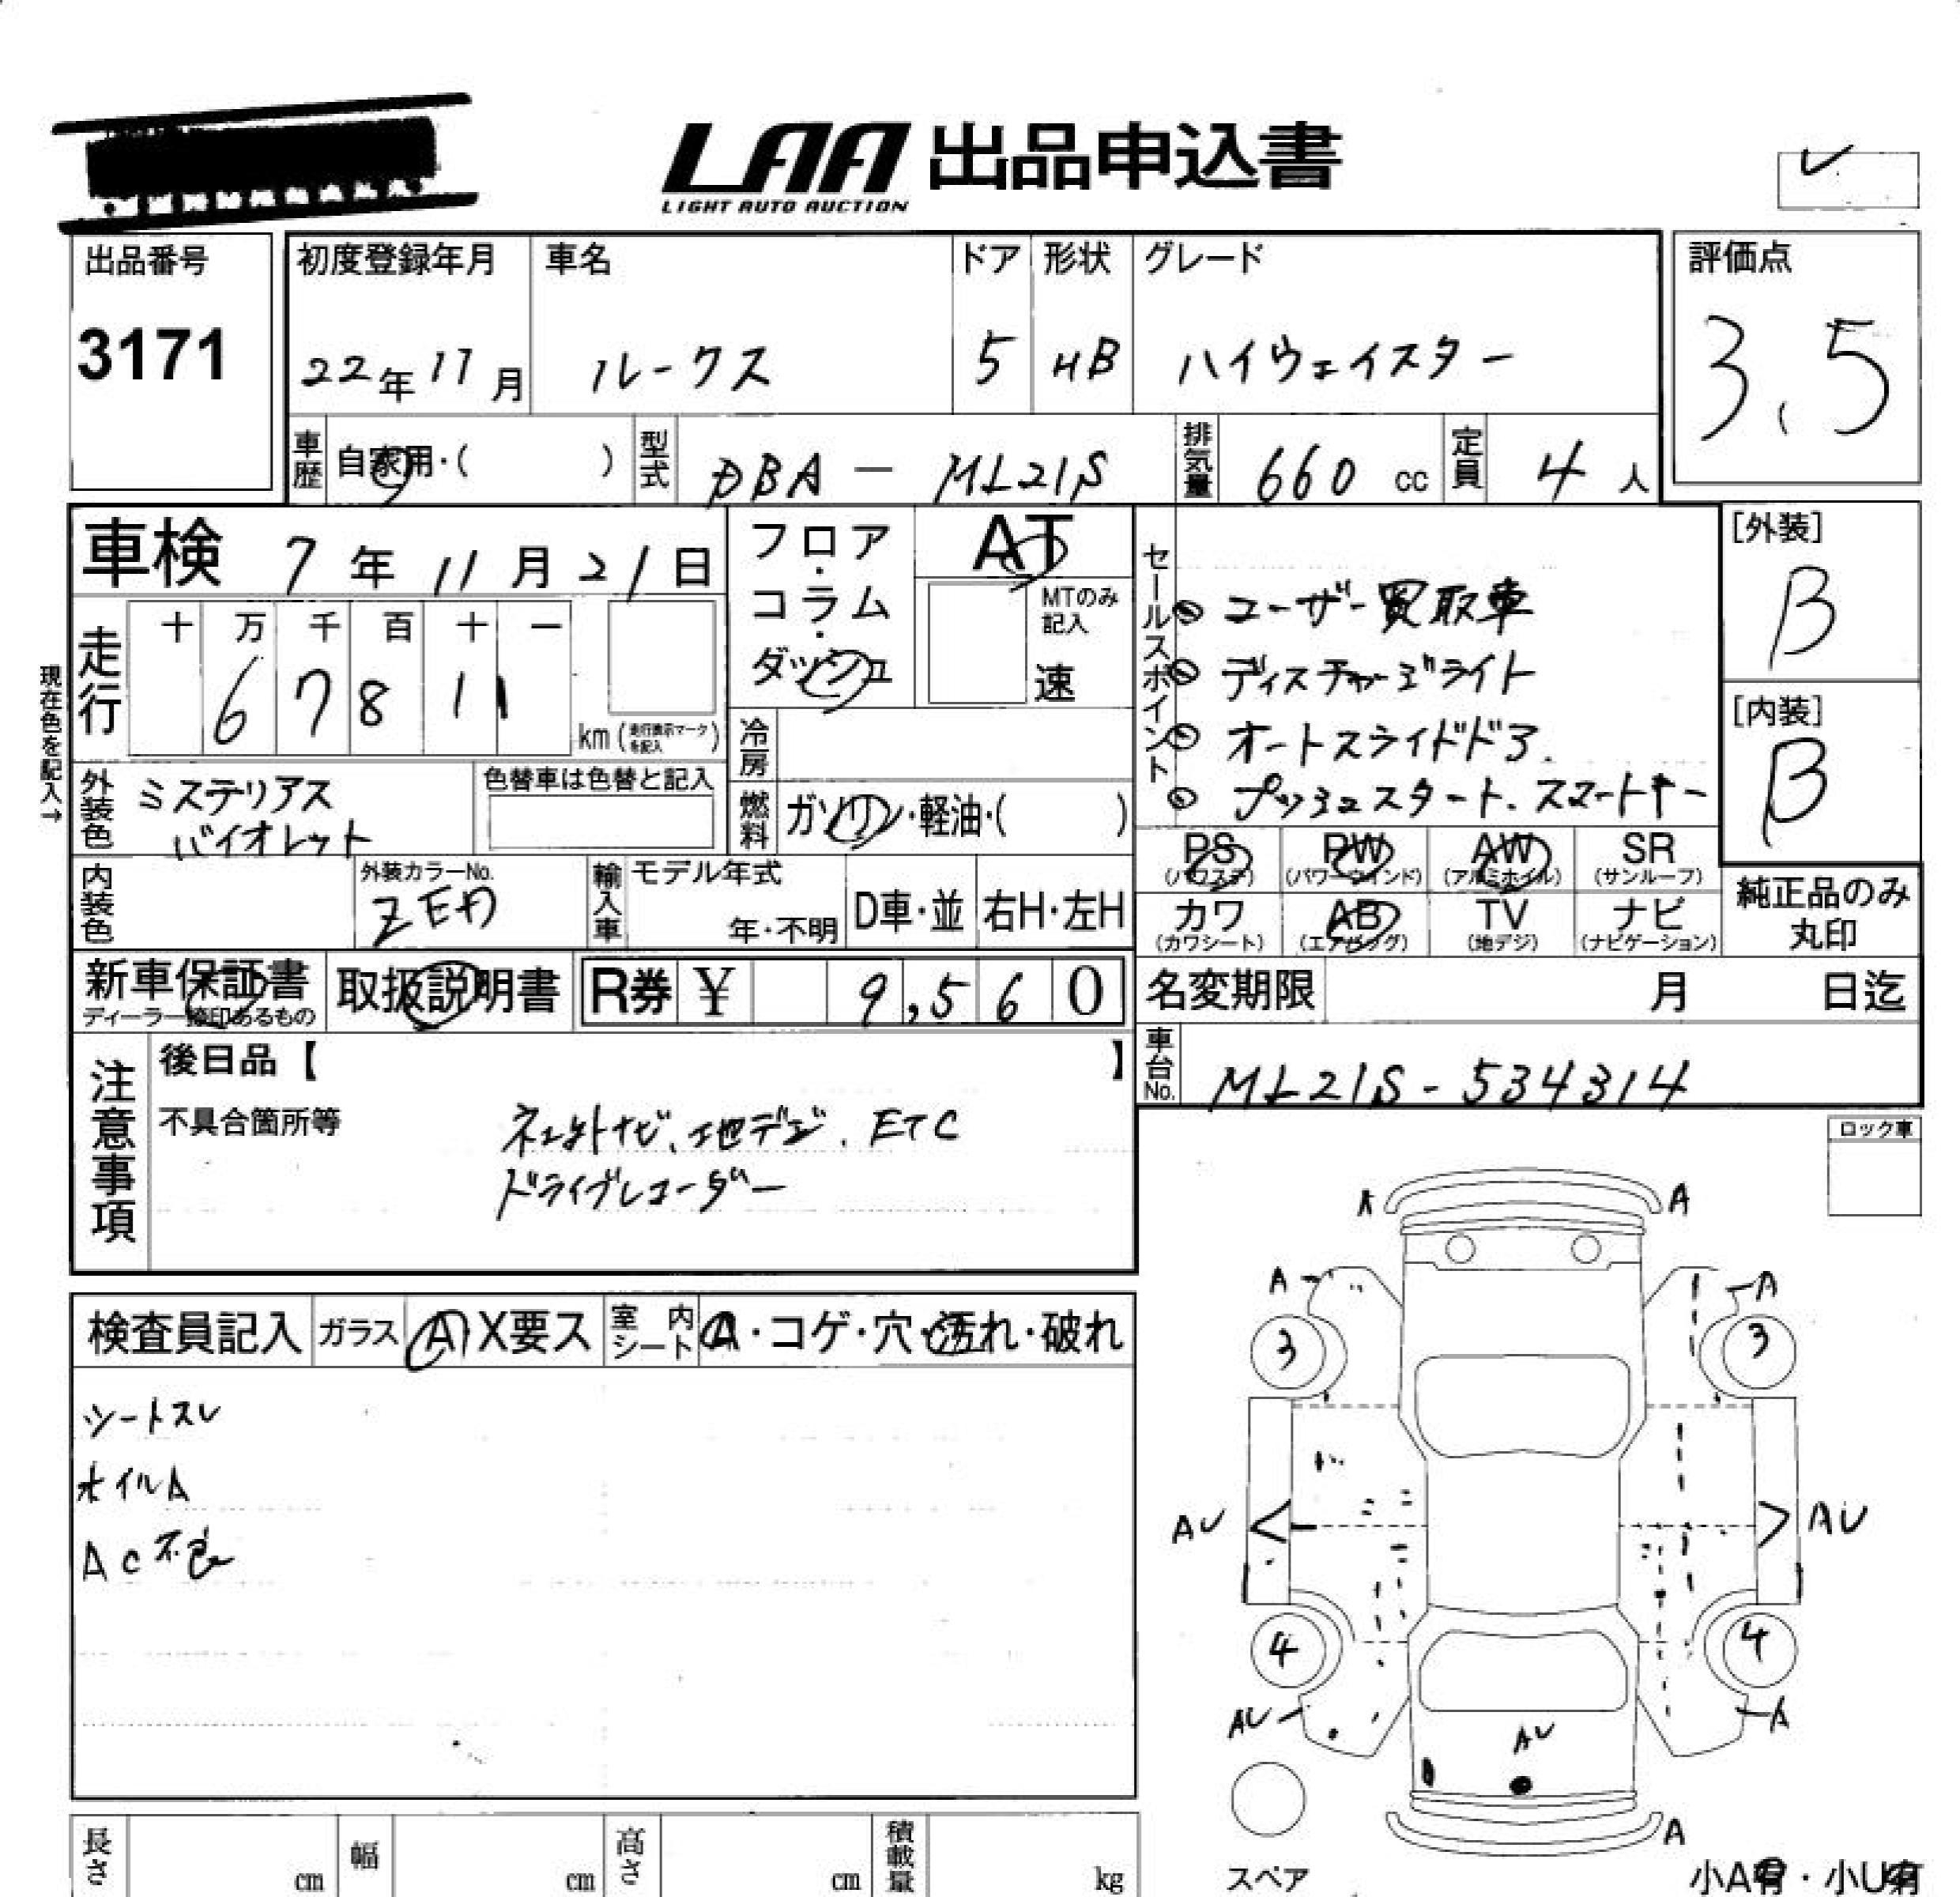 LAA 出品申込書
LIGHT AUTO AUCTION
出品番号
3171
初度登録年月
22年11月
車名
ルークス
ドア
5
形状
HB
グレード
ハイウェイスター
評価点
3.5
車歴
自家用・( )
型式
DBA - ML21S
排気量
660 cc
定員
4 人
車検 7年 11月 21日
フロア・コラム・ダッシュ
AT
MTのみ記入
速
現在色を記入→
走行
十 万 千 百 十 一
6 7 8 1 1
km (走行表示マークを記入)
冷房
燃料
ガソリン・軽油・( )
外装色
ミステリアス
バイオレット
色替車は色替と記入
内装色
外装カラーNo.
輸入車
モデル年式
年・不明
D車・並
右H・左H
セールスポイント
ユーザー買取車
ディスチャージライト
オートスライドドア.
プッシュスタート、スマートキー
[外装]
B
[内装]
B
PS
(パワステ)
PW
(パワーウインド)
AW
(アルミホイル)
SR
(サンルーフ)
カワ
(カワシート)
AB
(エアバッグ)
TV
(地デジ)
ナビ
(ナビゲーション)
純正品のみ
丸印
新車保証書
ディーラー捺印あるもの
取扱説明書
R券 ¥ 9,560
名変期限 月 日迄
車台No.
ML21S-534314
注意事項
後日品【 】
不具合箇所等
社外ナビ、地デジ、ETC
ドライブレコーダー
ロック車
検査員記入
ガラス A X要ス
室内シート
A・コゲ・穴・汚れ・破れ
シートスレ
オイルA
AC不良
A A
A A
3 3
AU AU
4 4
AU A
AU
A
スペア
小A有・小U有
長さ cm
幅 cm
高さ cm
積載量 kg